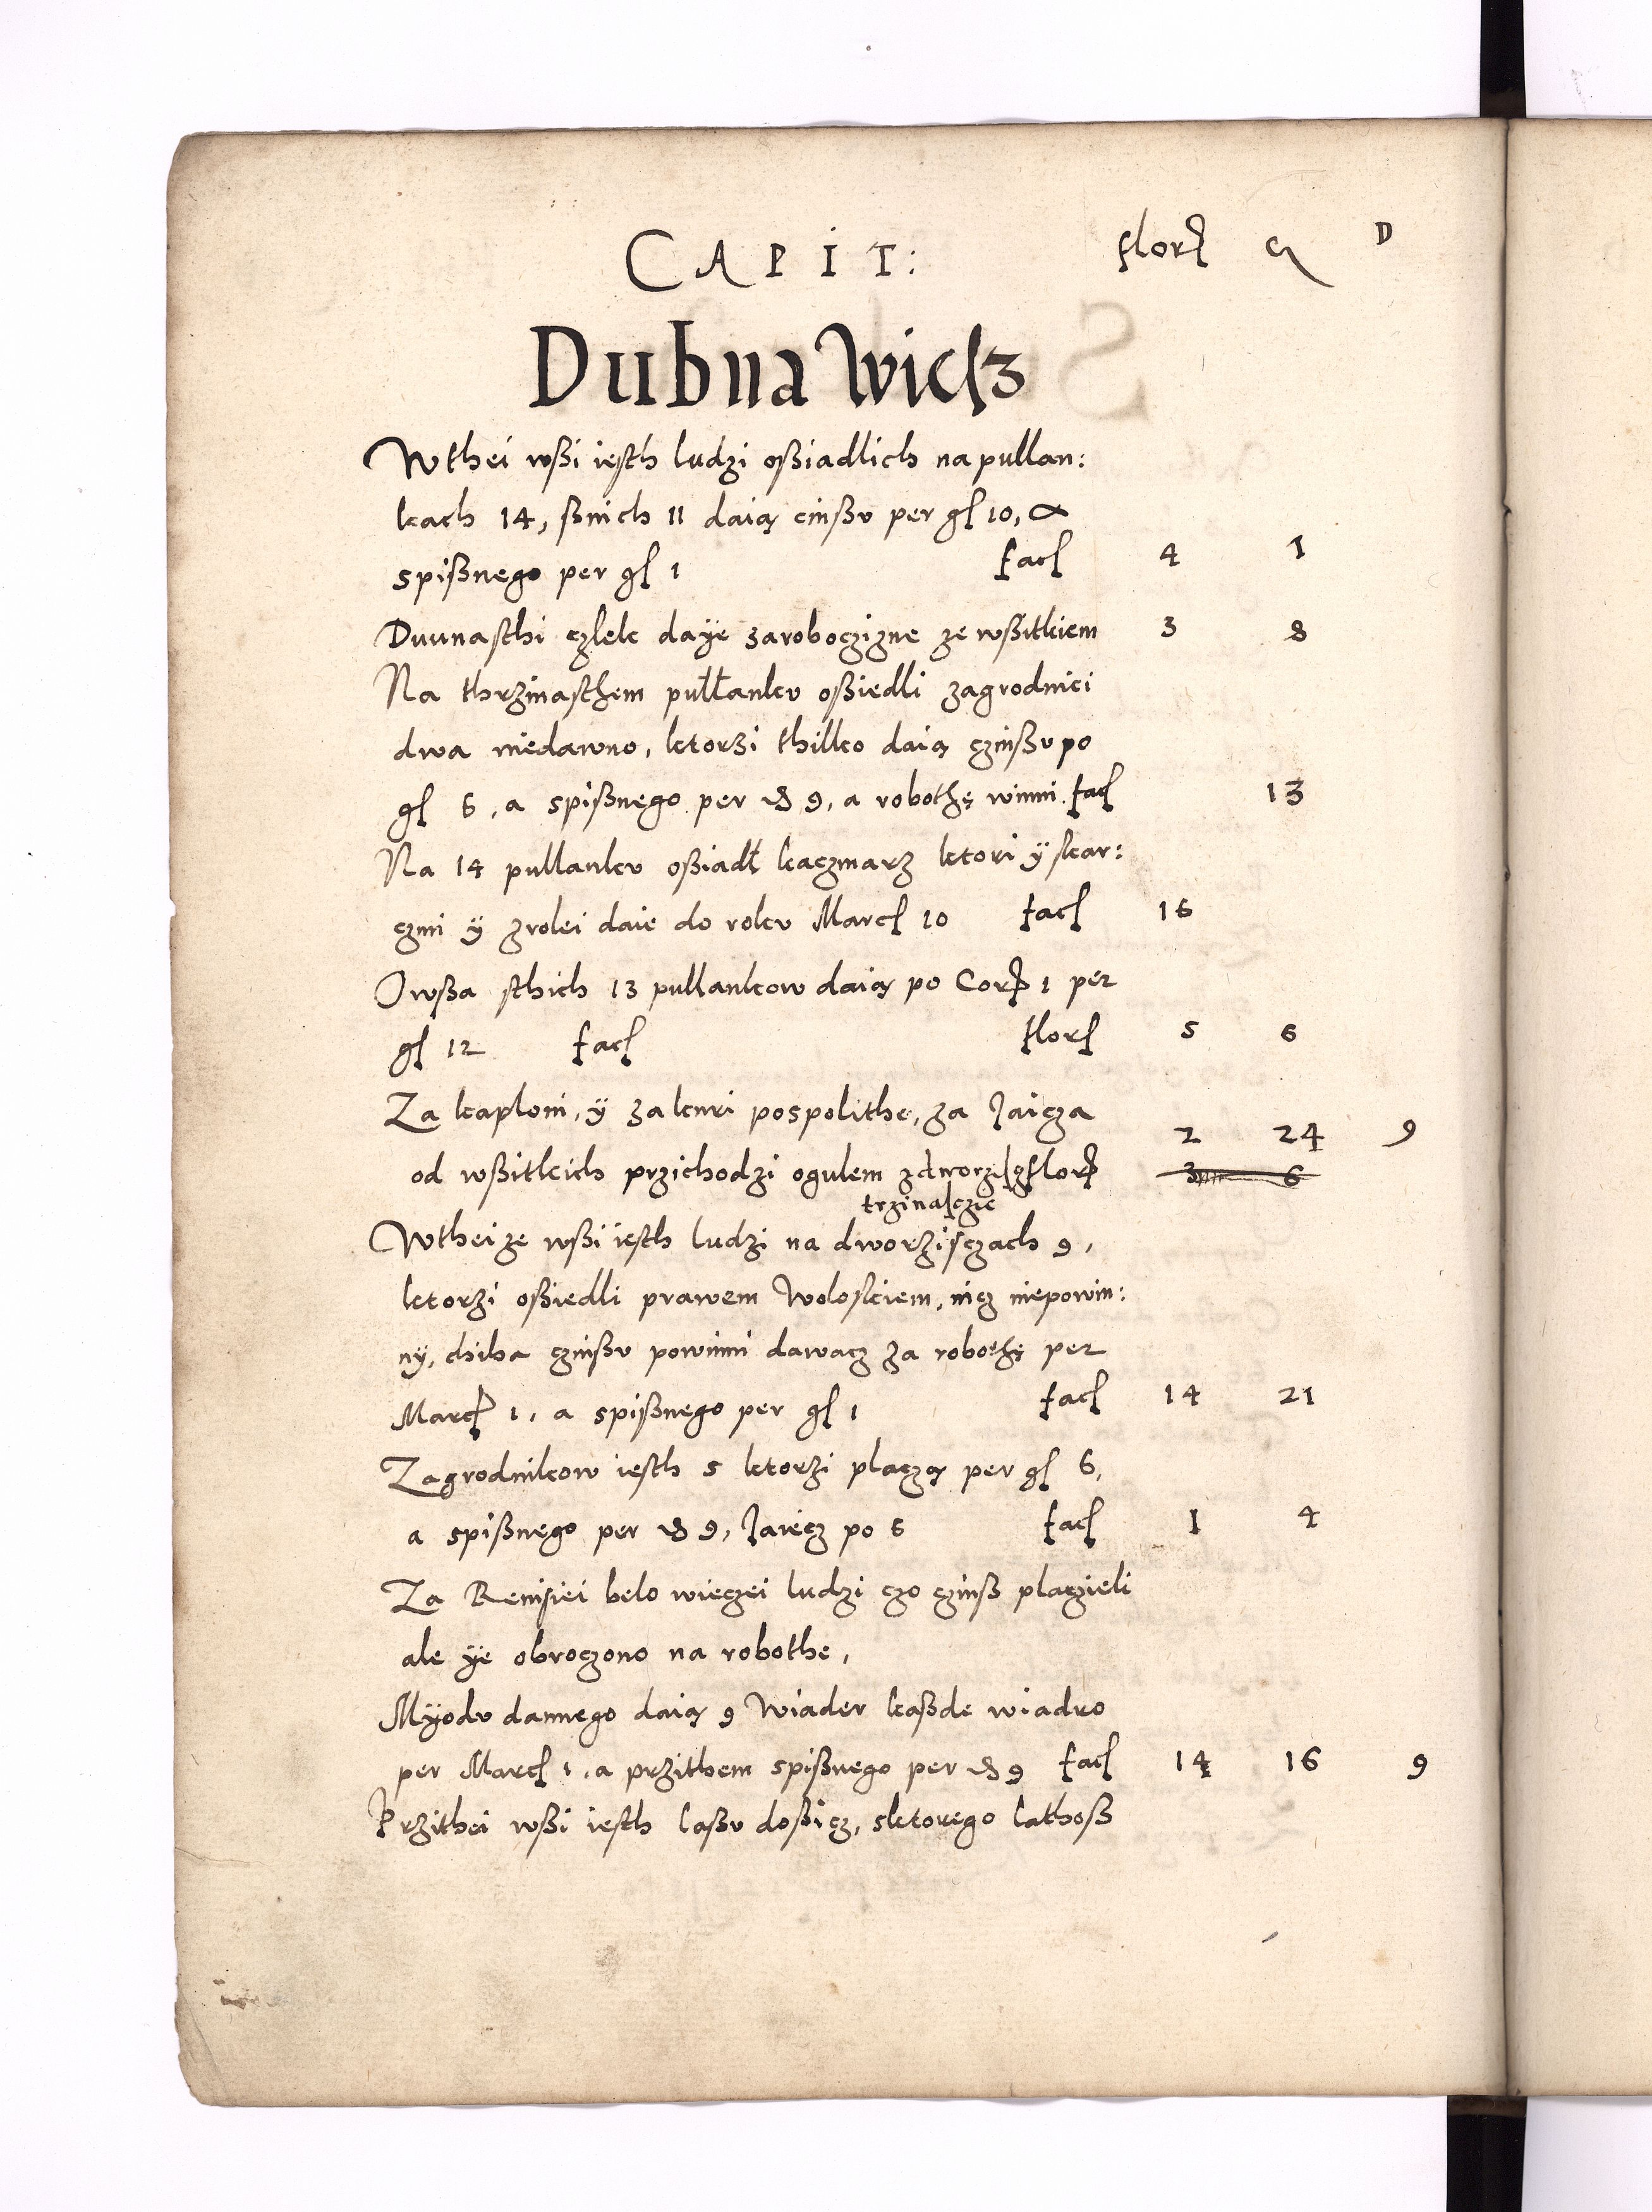 CAPIT: flor g D
Dubna Wiesz
W thei wßi iesth ludzi oßiadlich na pullan:
kach 14, ßnich 11 daią cinßv per gl 10, &
spißnego per gl 1 fac 4 1
Dwunasthi czlek daÿe zaroboczizne ze wßitkiem 3 8
Na thrzinasthem pułłankv oßiedli zagrodnici
dwa niedawno, ktorzi thilko daią czinßv po
gl 6, a spißnego per d 9, a robothę winni fac 13
Na 14 pullankv oßiadł kaczmarz ktori ÿ skar:
czmi ÿ zrolei daie do rokv Marc 10 fac 16
Owßa sthich 13 pullankow daią po Cor 1 per
gl 12 fac flor 5 6
Za kaploni, ÿ za kuri pospolithe, za Jaicza 2 24 9
od wßitkich przichodzi ogulem zdworzisz flor 3 6
trzinasczie
W theize wßi iesth ludzi na dworzisczach 9,
ktorzi oßiedli prawem Woloskiem, nicz niepowin:
nÿ, chiba czinßv powinni dawacz za robothę per
Marc 1, a spißnego per gl 1 fac 14 21
Zagrodnikow iesth 5 ktorzi placzą per gl 6,
a spißnego per d 9, Jaiecz po 6 fac 1 4
Za Remisiei belo wieczei ludzi czo czinß placzieli
ale ÿe obroczono na robothe,
Mÿodv dannego daią 9 Wiader kaßde wiadro
per Marc 1, a przithem spißnego per d 9 fac 14 16 9
Przithei wßi iesth laßv doßicz, sktorego lathoß